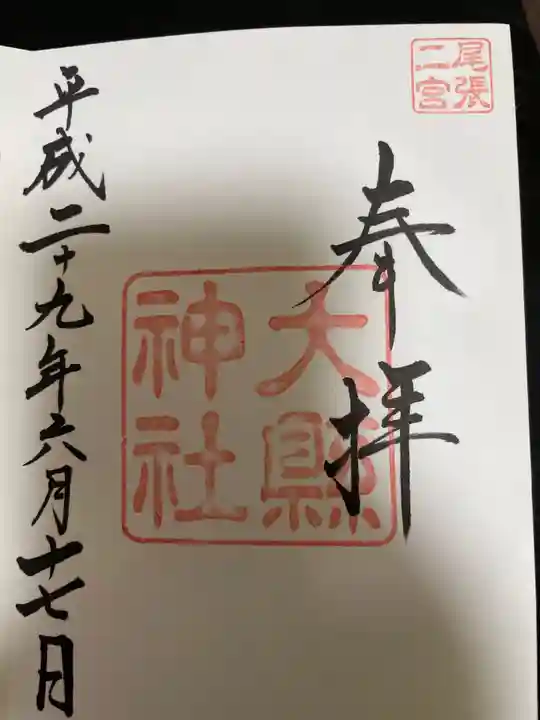 尾張
二宮
奉拝
大縣
神社
平成二十九年六月十七日